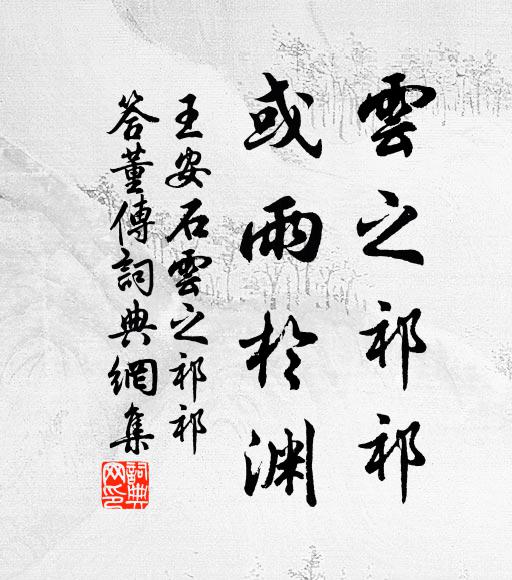 雲之祁祁
或雨於渊
王安石雲之祁祁
答董傳詞典網集
詞典网印